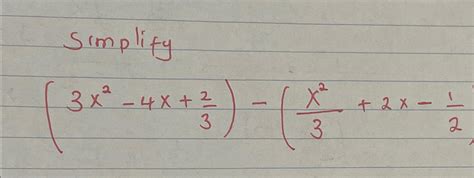 Simplify
(3x² - 4x + 2/3) - (x²/3 + 2x - 1/2)